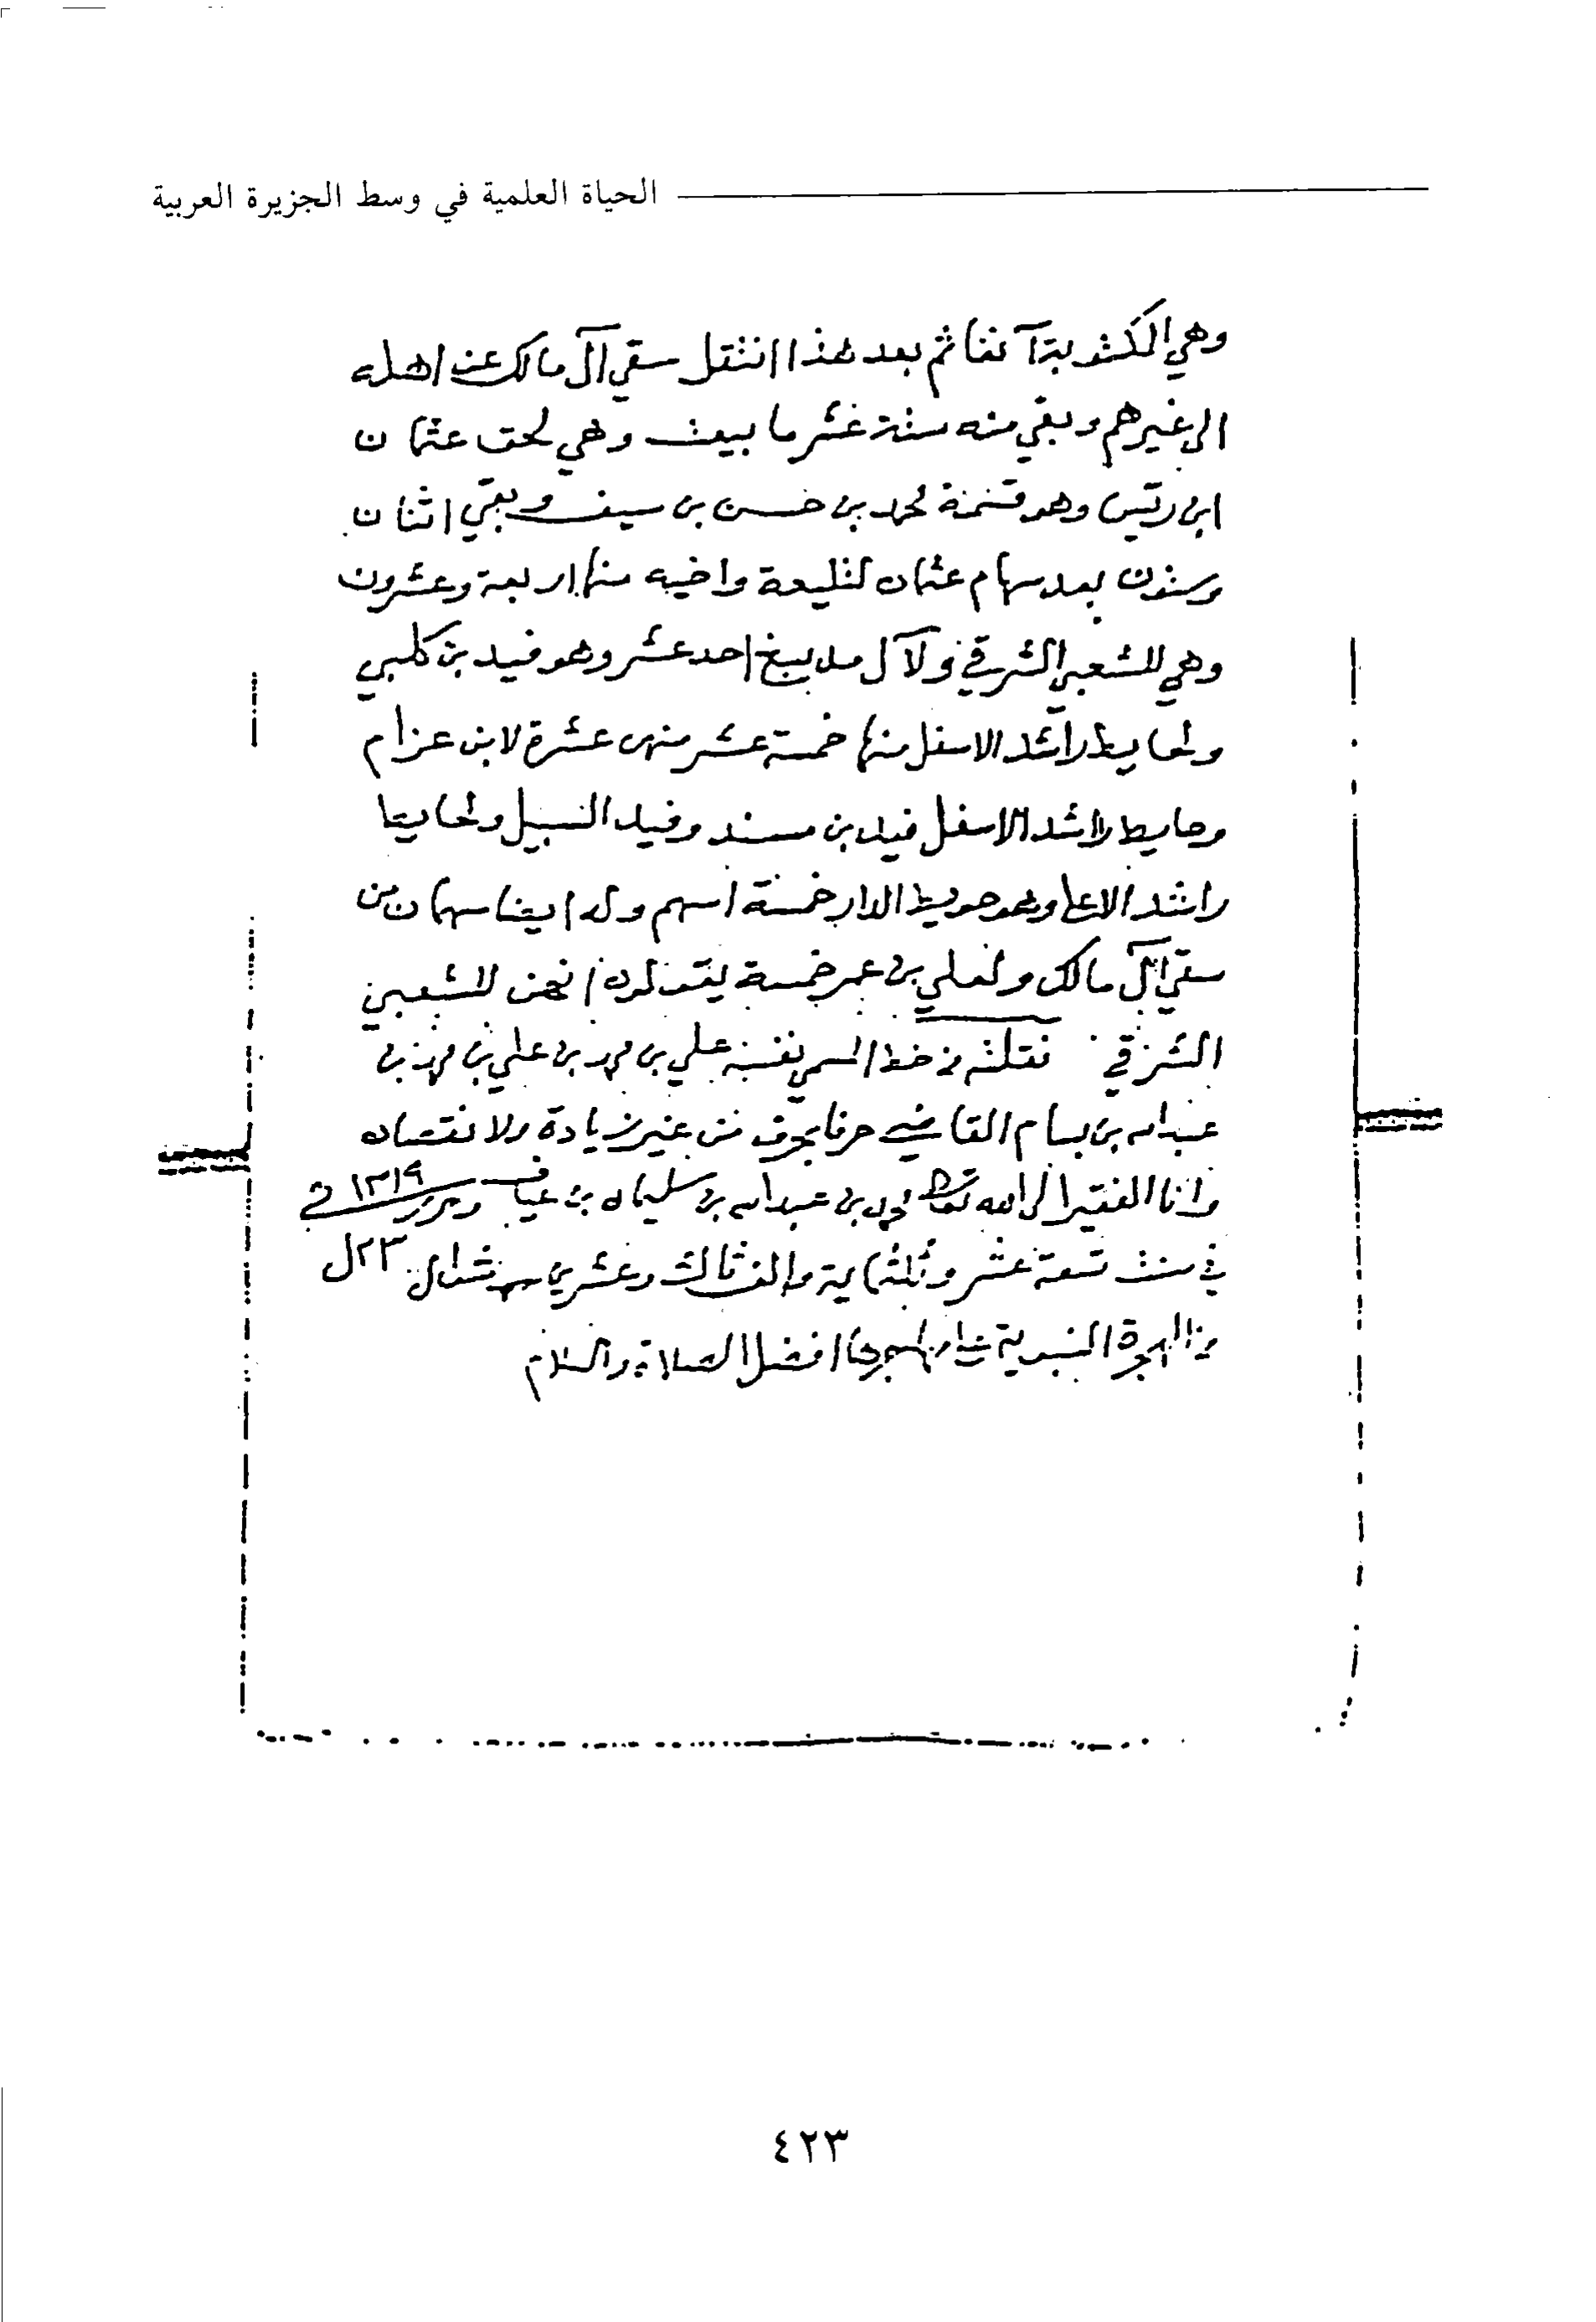 الحياة العلمية في وسط الجزيرة العربية
وهي المكتوبة آنفا ثم بعد هذا انتقل سقي آل مالك عن اهله
الى غيرهم وبقي منه ستة عشر ما بيعت وهي لحق عثمان
ابن ريس وهو قسمة لمحمد بن حسن بن سيف وبقي اثنان
وستون بعد سهام عثمان واخيه منها اربعة وعشرون
وهي للشعبي الشرقي ولآل احد عشر وهو فيد بن كلبي
ولحايط راشد الاسفل منها خمسة عشر منهن عشرة لابن عزام
وحايط راشد الاسفل فيد بن مسند وفيد السبيل ولحايط
راشد الاعلى وهو حويط الدار خمسة اسهم وله ايضا سهمان من
سقي آل مالك ولعلي بن عمر خمسة للشعبي
الشرقي نقلته من خط المسمي نفسه علي بن محمد بن علي بن محمد بن
عبدالله بن بسام القاضي حرفا بحرف من غير زيادة ولا نقصان
وانا الفقير الى الله تعالى محمد بن عبدالله بن سليمان بن وحرر في ١٣١٩
في سنة تسعة عشر وثلثماية والف ثالث وعشرين من شوال ٢٣ ل
من الهجرة النبوية على مهاجرها افضل الصلاة والسلام
٤٢٣